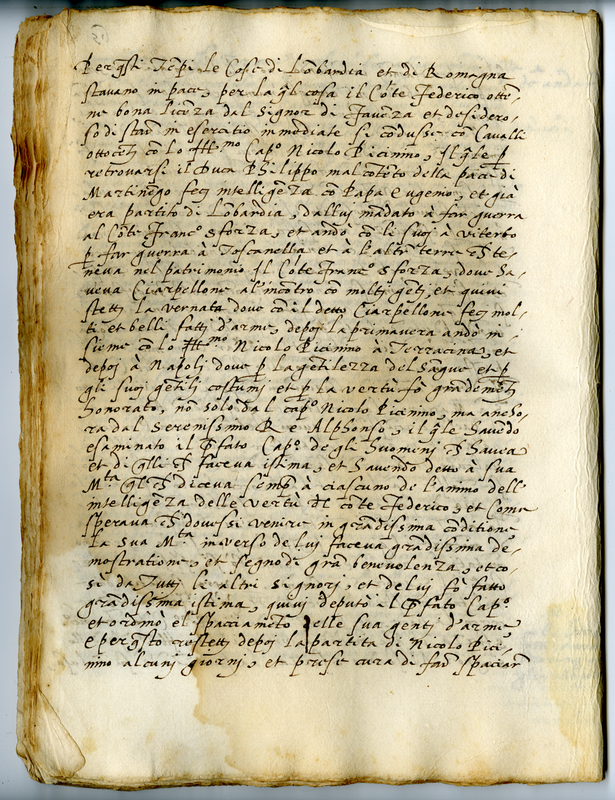 Per q̃sti Tẽpi le Cose di Lõbardia et di Romagna
stavano in pace, per la q̃l cosa il Cõte Federico otten-
ne bona licẽza dal Signor di Faẽza et desidero-
so di star̃ in esercitio immediate si cõdusse cõ Cavalli
ottocẽti cõ lo Ill.mo Cap.o Nicolo Picinino, Il q̃le p̱
retrovarsi il Duca Philippo malcõtẽto della pace di
Martinẽgo fece intelligẽza cõ Papa Eugenio, et già
era partito di Lõbardia, da llui mãdato à far guerra
al Cõte Franc.o Sforza, et andò cõ li suoj à Viterbo
p̱ far guerra à Toscanella et à l'altre terre ch̃ te-
neva nel patrimonio Il Cõte Franc.o Sforza, dove ha-
veva Ciarpellone al'incõtro cõ molti gẽti, et quivi
stetti la vernata dove cõ il detto Ciarpellone fece mol-
ti et belli fatti d'arme, depoj la primavera andò in-
sieme cõ lo Ill.mo Nicolo Picinino à Terracina, et
depoj à Napoli dove p̱ la gẽtilezza del sãque et p̱
gli suoj gẽtili costumj et p̱ la vertù fò grãdemẽti
honorato, nõ solo dal cap.o Nicolo Picinino, ma ancho-
ra dal Serenissimo Re Alphonso, il q̃le havẽdo
esaminato il p̃fato Cap.o de gli huomenj ch̃ havea
et di q̃lli ch̃ faceva istima, et havẽdo detto à sua
M.ta q̃l ch̃ diceva semp̃ à ciascuno de l'animo dell'
intelligẽza delle vertù del cõte Federico, et Come
sperava ch̃ dovessi venire in grãdissima cõditione
la sua M.ta inverso de lui faceva grãdissima de-
mostratione, et segno di grã benevolenza, et co-
sì da Tutti li altri signori, et de lui fò fatto
grãdissima istima, quivi deputò il p̃fato Cap.o
et ordinò el spacciamẽto delle sua genti d'arme
e per q̃sto restetti depoj la partita di Nicolo Pici-
nino alcunj giornj, et prese cura di far̃ spaciar̃